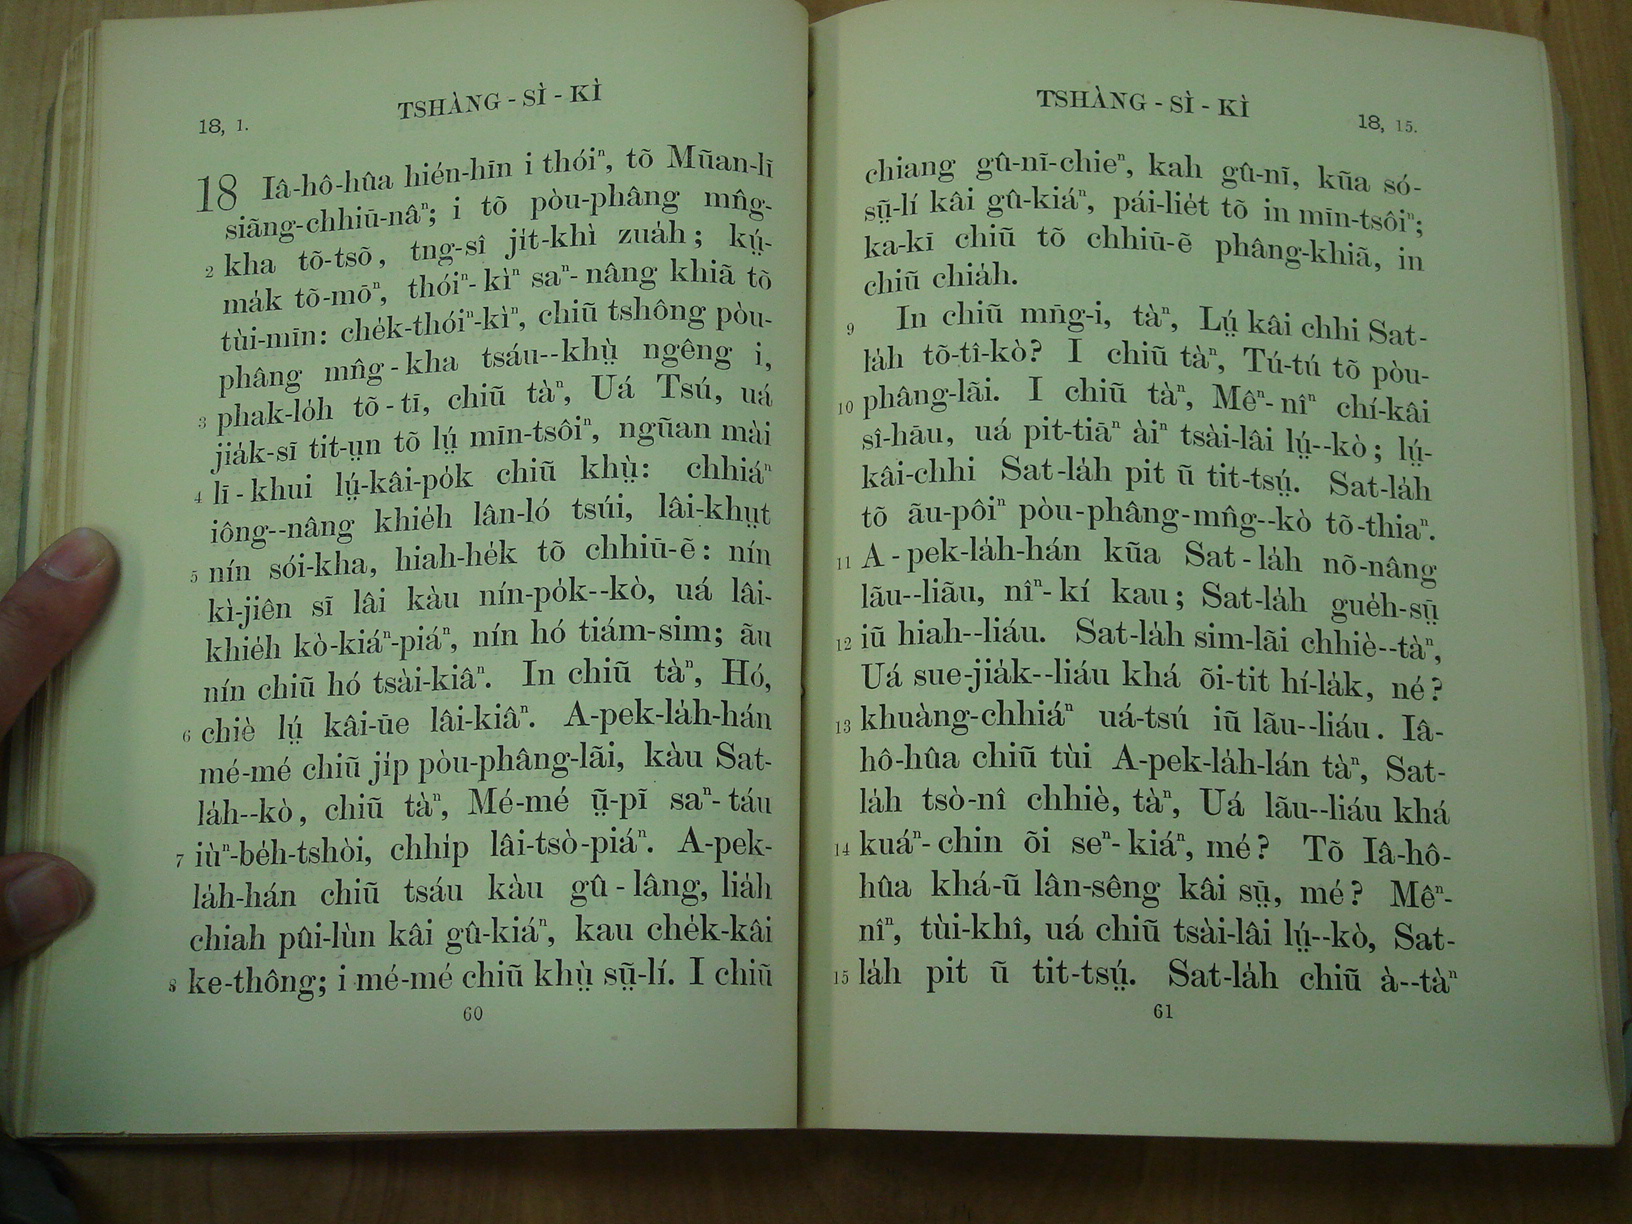 18, 1.
TSHÀNG - SÌ - KÌ
18 Iâ-hô-hûa hién-hīn i thóiⁿ, tõ Mũan-lī
siãng-chhiū-nâⁿ; i tõ pòu-phâng mn̂g-
2 kha tõ-tsõ, tng-sî ji̍t-khì zua̍h; kṳ́-
ma̍k tõ-mōⁿ, thóiⁿ-kìⁿ saⁿ-nâng khiã tõ
tùi-mīn: che̍k-thóiⁿ-kìⁿ, chiũ tshông pòu-
phâng mn̂g-kha tsáu--khṳ̀ ngêng i,
3 phak-lo̍h tõ-tī, chiũ tàⁿ, Uá Tsú, uá
jia̍k-sĩ tit-ṳn tõ lṳ́ mīn-tsôiⁿ, ngũan mài
4 lī-khui lṳ́-kâi-po̍k chiũ khṳ̀: chhiáⁿ
iông--nâng khie̍h lân-ló tsúi, lâi-khṳt
nín sói-kha, hiah-he̍k tõ chhiū-ẽ: nín
5 kì-jiên sĩ lâi kàu nín-po̍k--kò, uá lâi-
khie̍h kò-kiáⁿ-piáⁿ, nín hó tiám-sim; ãu
nín chiũ hó tsài-kiâⁿ. In chiũ tàⁿ, Hó,
6 chiè lṳ́ kâi-ūe lâi-kiâⁿ. A-pek-la̍h-hán
mé-mé chiũ ji̍p pòu-phâng-lãi, kàu Sat-
la̍h--kò, chiũ tàⁿ, Mé-mé ṳ̃-pĩ saⁿ-táu
7 iùⁿ-be̍h-tshòi, chhi̍p lâi-tsò-piáⁿ. A-pek-
la̍h-hán chiũ tsáu kàu gû-lâng, lia̍h
chiah pûi-lùn kâi gû-kiáⁿ, kau che̍k-kâi
8 ke-thông; i mé-mé chiũ khṳ̀ sṳ̃-lí. I chiũ
60
TSHÀNG - SÌ - KÌ
18, 15.
chiang gû-nĩ-chieⁿ, kah gû-nĩ, kũa só-
sṳ̃-lí kâi gû-kiáⁿ, pái-lie̍t tõ in mīn-tsôiⁿ;
ka-kī chiũ tõ chhiū-ẽ phâng-khiã, in
chiũ chia̍h.
9 In chiũ mn̄g-i, tàⁿ, Lṳ́ kâi chhi Sat-
la̍h tõ-tî-kò? I chiũ tàⁿ, Tú-tú tõ pòu-
10 phâng-lãi. I chiũ tàⁿ, Mêⁿ-nîⁿ chí-kâi
sî-hāu, uá pit-tiāⁿ àiⁿ tsài-lâi lṳ́--kò; lṳ́-
kâi-chhi Sat-la̍h pit ũ tit-tsṳ́. Sat-la̍h
tõ ãu-pôiⁿ pòu-phâng-mn̂g--kò tõ-thiaⁿ.
11 A-pek-la̍h-hán kũa Sat-la̍h nõ-nâng
lãu--liãu, nîⁿ-kí kau; Sat-la̍h gue̍h-sṳ̄
12 iũ hiah--liáu. Sat-la̍h sim-lãi chhiè--tàⁿ,
Uá sue-jia̍k--liáu khá õi-tit hí-la̍k, né?
13 khuàng-chhiáⁿ uá-tsú iũ lãu--liáu. Iâ-
hô-hûa chiũ tùi A-pek-la̍h-lán tàⁿ, Sat-
la̍h tsò-nî chhiè, tàⁿ, Uá lãu--liáu khá
14 kuáⁿ-chin õi seⁿ-kiáⁿ, mé? Tõ Iâ-hô-
hûa khá-ũ lân-sêng kâi sṳ̄, mé? Mêⁿ-
nîⁿ, tùi-khî, uá chiũ tsài-lâi lṳ́--kò, Sat-
15 la̍h pit ũ tit-tsṳ́. Sat-la̍h chiũ à--tàⁿ
61